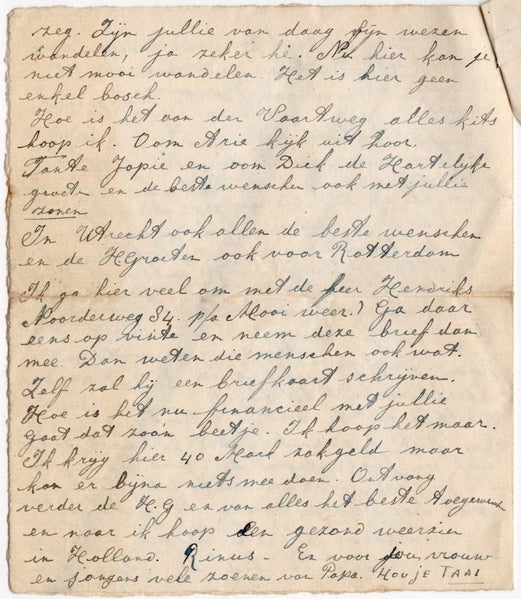 zeg. Zijn jullie van daag fijn wezen
wandelen, ja zeker hé. Nu hier kan je
niet mooi wandelen. Het is hier geen
enkel bosch.
Hoe is het aan der Vaartweg alles kits
hoop ik. Oom Arie kijk uit hoor.
Tante Jopie en oom Dick de Hartelijke
groeten en de beste wenschen ook met jullie
zonen
In Utrecht ook allen de beste wenschen
en de HGroeten ook voor Rotterdam
Ik ga hier veel om met de heer Hendriks
Noorderweg 84. p/a Mooi weer.) Ga daar
eens op visite en neem deze brief dan
mee. Dan weten die menschen ook wat.
Zelf zal hij een briefkaart schrijven.
Hoe is het nu financieel met jullie
gaat dat zoo'n beetje. Ik hoop het maar.
Ik krijg hier 40 Mark zakgeld maar
kan er bijna niets mee doen. Ontvang
verder de H.G en van alles het beste toegewenscht
en naar ik hoop den gezond weerzien
in Holland. Rinus - En voor jou vrouw
en jongens vele zoenen van Papa. HOU JE TAAI